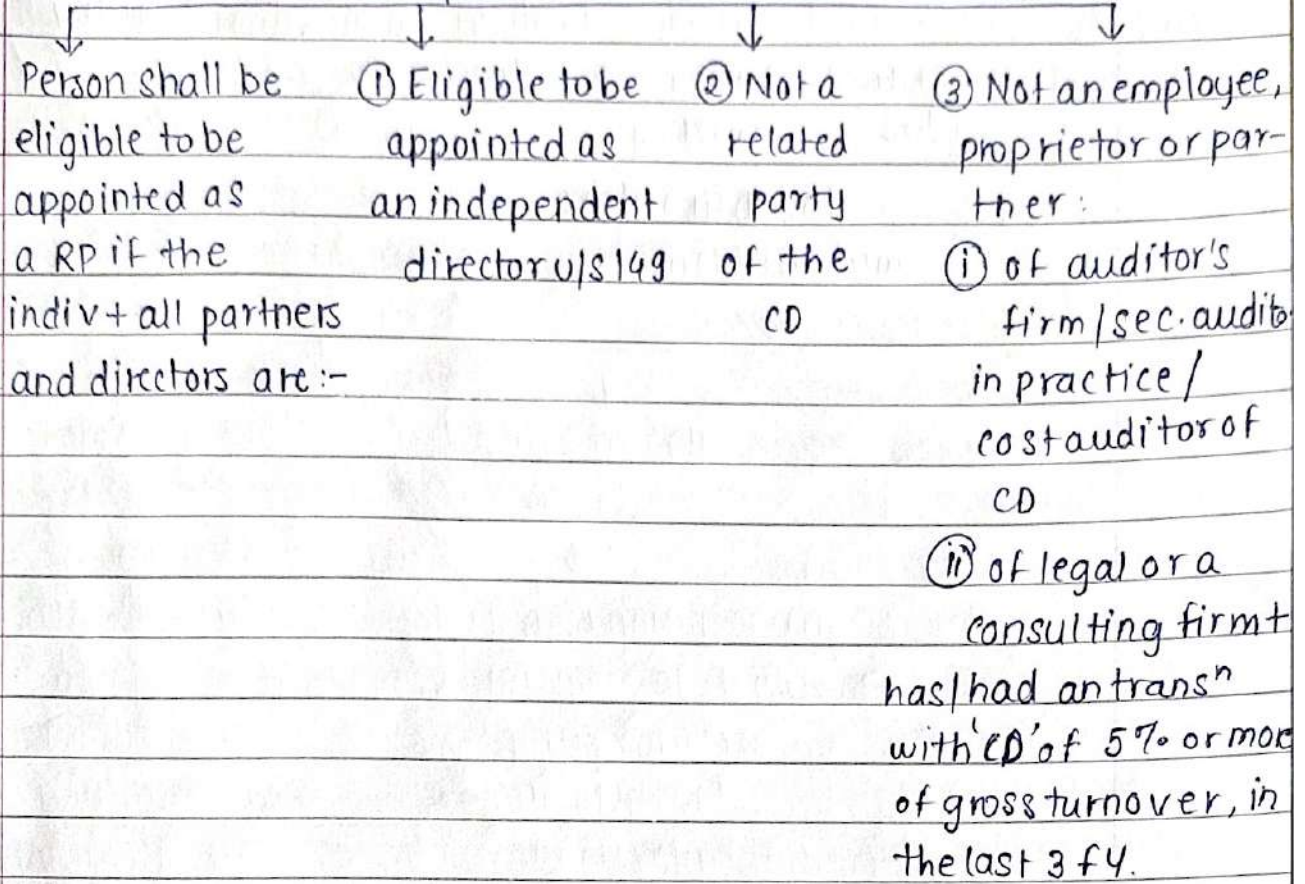 Person shall be
eligible to be
appointed as
a RP if the
indiv + all partners
and directors are :-
① Eligible to be
appointed as
an independent
director u/s 149
② Not a
related
party
of the
CD
③ Not an employee,
proprietor or par-
tner :
ⓘ of auditor's
firm / sec. audito
in practice /
cost auditor of
CD
ⓘⓘ of legal or a
consulting firm +
has/had an transⁿ
with 'CD' of 5% or more
of gross turnover, in
the last 3 fy.